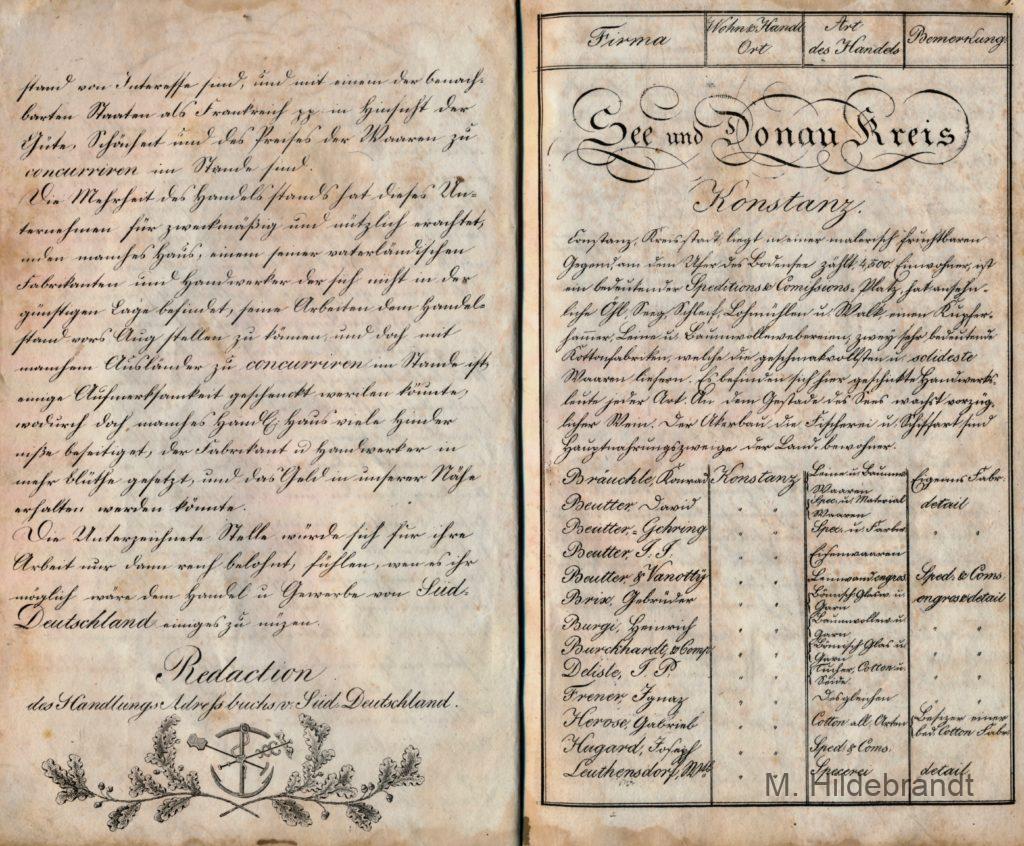 stand von Interesse sind, und mit einem der benach-
barten Staaten als Frankreich pp. in Hinsicht der
Güte, Schönheit und des Preises der Waaren zu
concurriren im Stande sind.
Die Mehrheit des Handelsstands hat dieses Un-
ternehmen für zweckmäßig und nützlich erachtet,
inden manches Haus, einem seiner vaterländischen
Fabrikanten und Handwerker der sich nicht in der
günstigen Lage befindet, seine Arbeiten dem Handels-
stand vors Aug stellen zu könen, und doch mit
manchem Ausländer zu concurriren im Stande ist,
einige Aufmerksamkeit geschenckt werden könnte,
wodurch doch manches Handls Haus viele Hinder
niße beseitiget, der Fabrikant u Handwerker in
mehr blüthe gesetzt, und das Geld in unserer Nähe
erhalten werden könnte.
Die Unterzeichnete Stelle würde sich für ihre
Arbeit nur dann reich belohnt, fühlen, wen es ihr
möglich wäre dem Handel u Gewerbe von Süd-
Deutschland einiges zu nüzen.
Redaction
des Handlungs Adreß buchs v. Süd Deutschland.
1.
Firma Wohn & Handl Ort Art des Handels Bemerkung
See und Donau Kreis
Konstanz.
Constanz, Kreisstadt, liegt in einer malerisch fruchtbaren
Gegend, am dem Ufer des Bodensee zählt 4,500 Einwohner, ist
ein bedeutender Speditions & Comissons-Platz, hat ansehn-
liche Öhl, Seeg, Schleif, Lohmühlen u. Walk, einen Kupfer-
hammer, Leine u Baumwollewebereien, zwey sehr bedeutende
Kottonfabriken, welche die geschmakvollsten u. solideste
Waaren liefern. Es befinden sich hier geschikte Handwerks-
leute jeder Art. An dem Gestade des Sees wachst vorzüg-
licher Wein. Der Akerbau die Fischerei u. Schiffart sind
Hauptnahrungszweige der Land-bewohner.
Bräuchle, Konrad Konstanz Leine u. Baumw Waaren Eigenns Fabr.
Beutter, David " " Spec. u. Material Waaren detail
Beutter-Gehring " " Spec. u Farbw " "
Beutter, I. I. " " Eisenwaaren
Beutter & Vanottÿ " " Leinwand, engros Sped. & Coms.
Brix, Gebrüder " " Bömisch Glasw. u. Garn engros & detail
Burgi, Heinrich " " Baumwollew. u Garn " "
Burckhardt, & Comp. " " Bömisch Glas u Garn " "
Delisle, I. P. " " Tücher, Cotton u. Seide
Frener, Ignaz " " Desgleichen " "
Herose, Gabriel " " Cotton all. Arten Besizer einer bed. Cotton Fabr
Hugard, Joseph " " Sped & Coms.
Leuthensdorf, Wtb " " Specerei detail
M. Hildebrandt